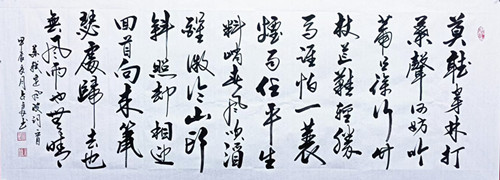 莫聽穿林打
葉聲何妨吟
嘯且徐行竹
杖芒鞋輕勝
馬誰怕一蓑
煙雨任平生
料峭春風吹酒
醒微冷山頭
斜照卻相迎
回首向來蕭
瑟處歸去也
無風雨也無晴
蘇軾定風波詞一首
甲辰